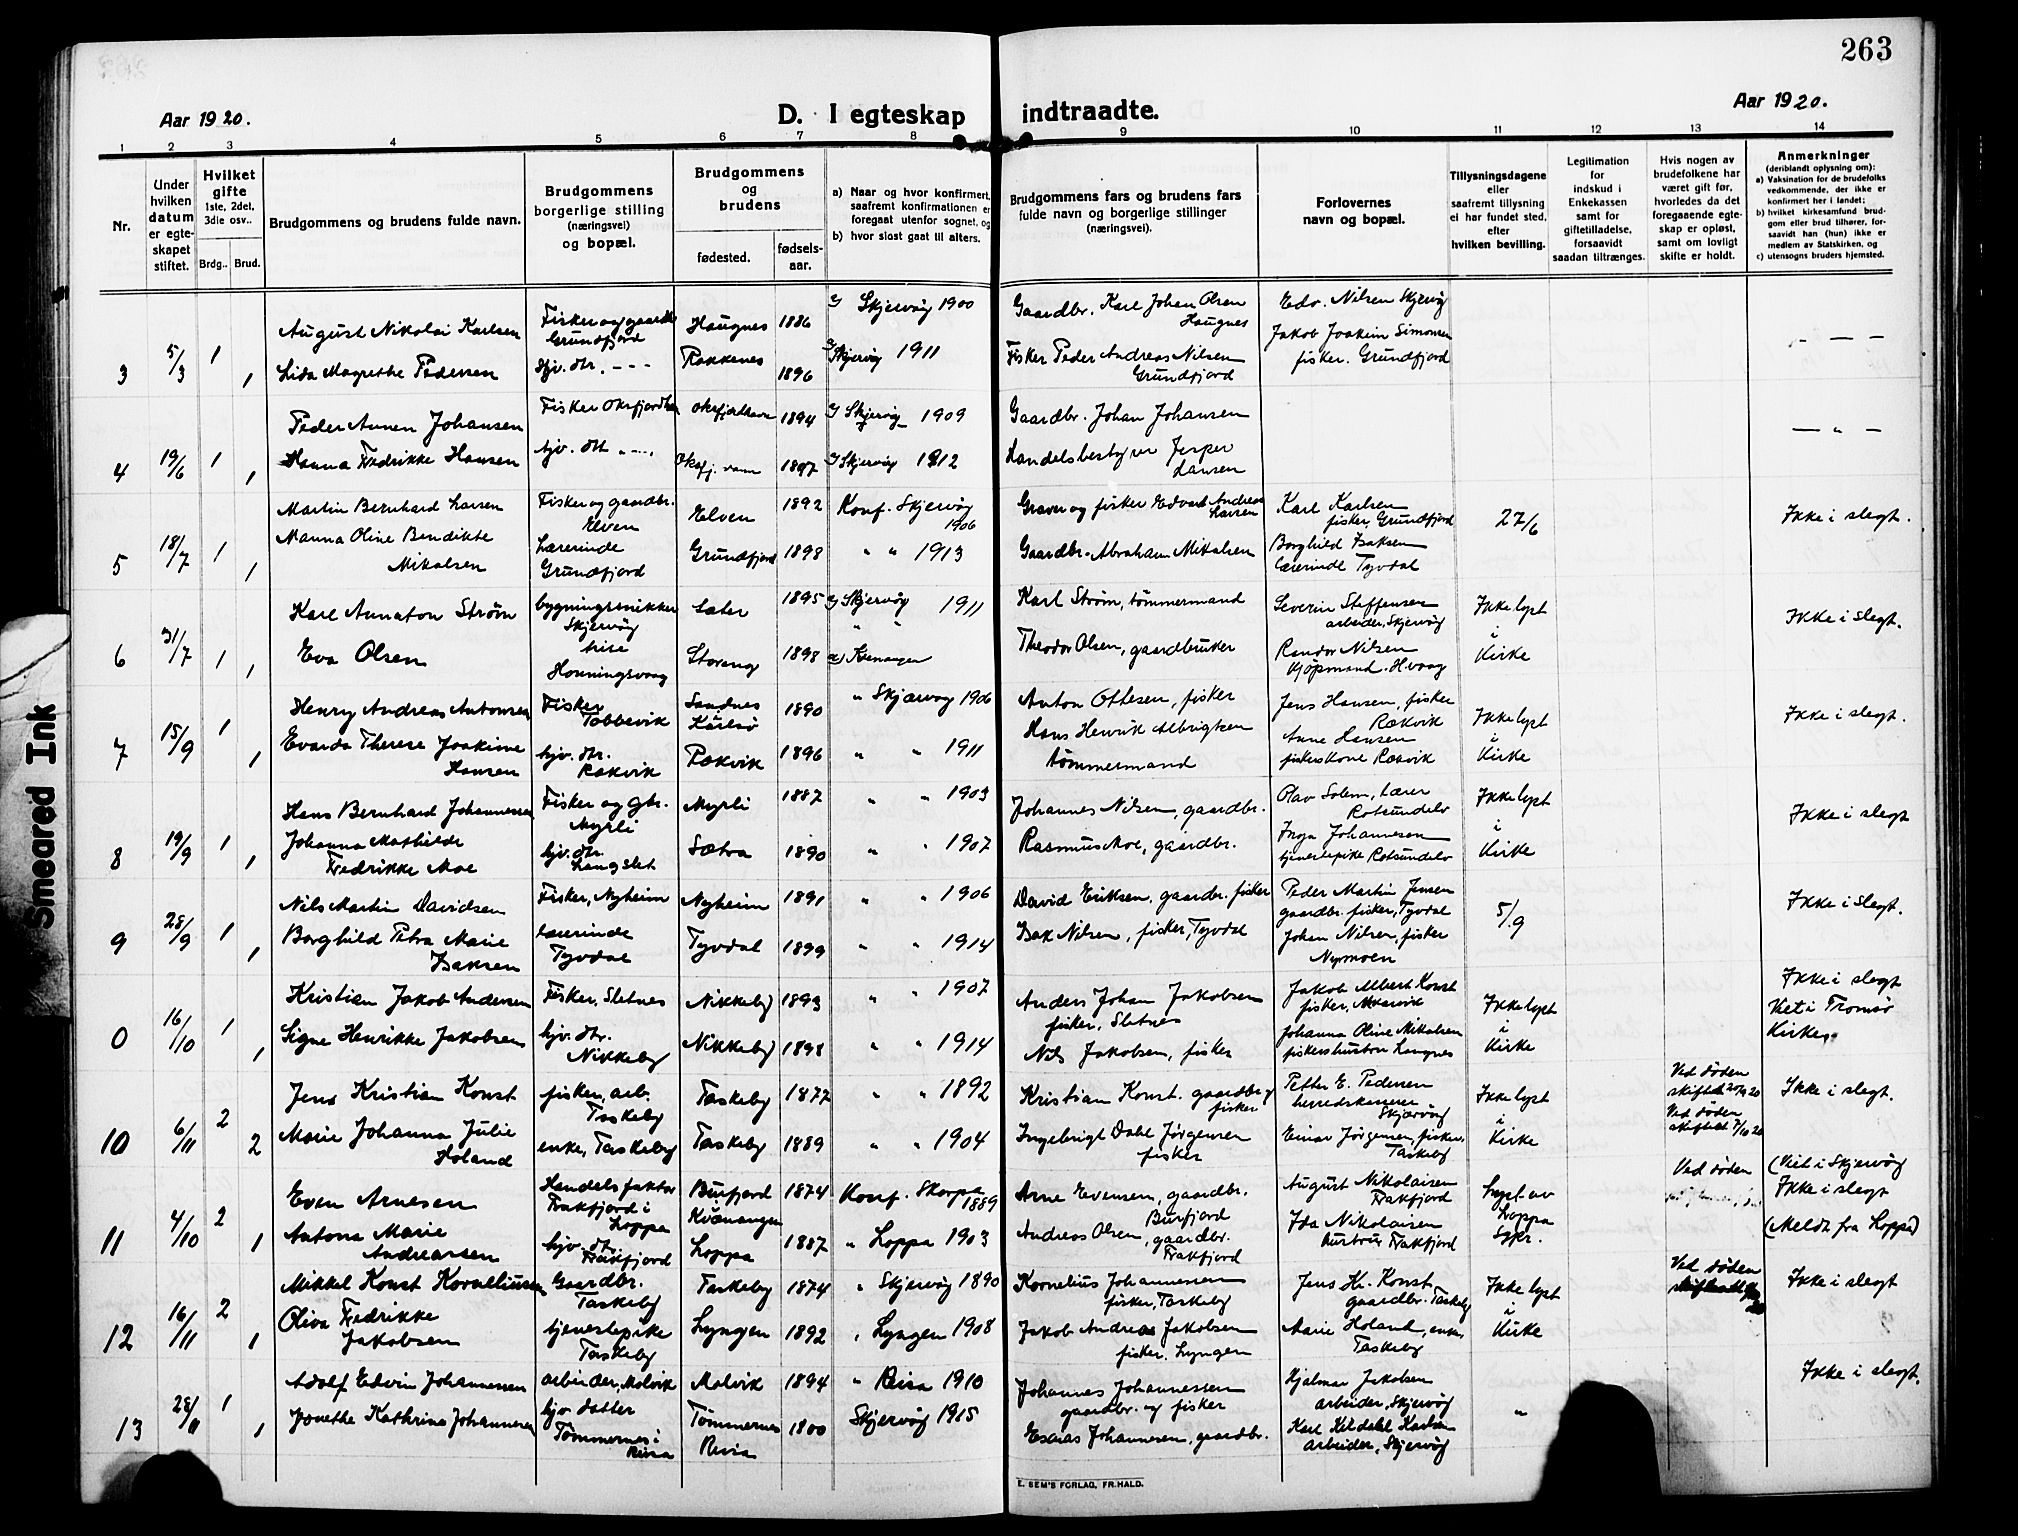 263
Aar 1920.
D. I egteskap indtraadte.
Aar 1920.
1 2 3 4 5 6 7 8 9 10 11 12 13 14
Nr.
Under hvilken datum er egteskapet stiftet.
Hvilket gifte 1ste, 2det, 3die osv..
Brdg.. Brud.
Brudgommens og brudens fulde navn.
Brudgommens borgerlige stilling (næringsvei) og bopæl.
Brudgommens og brudens
fødested.
fødsels-aar.
a) Naar og hvor konfirmert, saafremt konfirmationen er foregaat utenfor sognet, og
b) hvor sidst gaat til alters.
Brudgommens fars og brudens fars fulde navn og borgerlige stillinger (næringsvei).
Forlovernes navn og bopæl.
Tillysningsdagene eller saafremt tillysning ei har fundet sted, efter hvilken bevilling.
Legitimation for indskud i Enkekassen samt for giftetilladelse, forsaavidt saadan tiltrænges.
Hvis nogen av brudefolkene har været gift før, hvorledes da det foregaaende egteskap er opløst, samt om lovligt skifte er holdt.
Anmerkninger (deriblandt oplysning om):
a) Vaksination for de brudefolks vedkommende, der ikke er konfirmert her i landet;
b) hvilket kirkesamfund brudgom eller brud tilhører, forsaavidt han (hun) ikke er medlem av Statskirken, og
c) utensogns bruders hjemsted.
3 5/3 1 August Nikolai Karlsen Fisker og gaardbr Grundfjord Haugnes 1886 Skjervøy 1900 Gaardbr. Karl Johan Olsen Haugnes Edv. Nilsen Skjervøy
1 Lida Magrethe Pedersen Rakkenes 1896 Skjervøy 1911 Fisker Peder Andreas Nilsen Grundfjord Jakob Joakim Simonsen fisker. Grundfjord
4 19/6 1 Peder Annen Johansen Fisker Oksfjordhavn Oksfjordhavn 1894 Skjervøy 1909 Gaardbr. Johan Johansen
1 Hanna Fredrikke Hansen Oksfj. 1897 Skjervøy 1912 Handelsbestyrer Jesper Hansen
5 18/7 1 Martin Bernhard Larsen Fisker og gaardbr. Elven Elven 1892 Konf. Skjervøy 1906 Graver og fisker Edvart Andreas Larsen Karl Karlsen fisker, Grundfjord 27/6 Ikke i slegt.
1 Manna Oline Bendikte Mikalsen Lærerinde Grundfjord Grundfjord 1898 " " 1913 Gaardbr. Abraham Mikalsen Borghild Isaksen lærerinde Tyvdal
6 31/7 1 Karl Annaton Strøm bygningssnikker Skjervøy Sæter 1895 Skjervøy 1911 Karl Strøm, tømmermand Severin Steffensen arbeider, Skjervøy Ikke lyst i Kirke Ikke i slegt.
1 Eva Olsen Honningsvaag Storeng 1898 Theodor Olsen, gaardbruker Randor Nilsen kjøpmand. H.vaag
7 15/9 1 Henry Andreas Antonsen Fisker Tobbevik Sandnes Karlsø 1890 " Skjærvøy 1906 Anton Ottesen, fisker Jens Hansen, fisker Rækvik Ikke lyst i Kirke Ikke i slegt.
1 Evarda Therese Joakime Hansen hjv. dtr. Rækvik Rækvik 1896 " " 1911 Hans Henrik Albrigtsen tømmermand Anne Hansen fiskerkone Rækvik
8 19/9 1 Hans Bernhard Johannessen Fisker og gbr. Myrli Myrli 1887 " " 1903 Johannes Nilsen, gaardbr. Olav Solem, Lærer Rotsundelv Ikke lyst i Kirke Ikke i slegt
1 Johanna Mathilde Fredrikke Moe hjv. dtr. Langslet Sætra 1890 " " 1907 Rasmus Moe, gaardbr. Inga Johannesen tjenestepike Rotsundelv
9 28/9 1 Nils Martin Davidsen Fisker, Nyheim Nyheim 1891 " " 1906 David Eriksen, gaardbr. fisker Peder Martin Jensen gaardbr. fisker, Tyvdal 5/9 Ikke i slegt.
1 Borghild Petra Marie Isaksen Lærerinde Tyvdal Tyvdal 1899 " " 1914 Isak Nilsen, fisker, Tyvdal Johan Nilsen, fisker Nymoen
0 16/10 1 Kristian Jakob Andersen Fisker, Sletnes Nikkeby 1893 " " 1907 Anders Johan Jakobsen fisker, Sletnes Jakob Albert Konst fisker, Ikke lyst i Kirke Ikke i slegt Viet i Tromsø Kirke.
1 Signe Henrikke Jakobsen hjv. dtr. Nikkeby Nikkeby 1898 " " 1914 Nils Jakobsen, fisker Johanna Oline Mikalsen fiskershustru Langnes
10 6/11 2 Jens Kristian Konst fisker, arb. Taskeby Taskeby 1877 " " 1892 Kristian Konst. gaardbr og fisker Petter E. Pedersen herredskasserer Skjærvøy Ikke lyst i Kirke Ved døden Ikke i slegt.
2 Marie Johanna Julie Holand enke, Taskeby Taskeby 1889 " " 1904 Ingebrigt Dahl Jørgensen fisker Einar Jørgensen, fisker. Taskeby Ved døden skiftet 7/10 20
11 4/10 2 Even Arnesen Handelsfaktor Frakfjord i Loppa Burfjord Kvænangen 1874 Konf. Skorpa 1889 Arne Evensen, gaardbr. Burfjord August Nikolaisen Frakfjord Lyst av Loppa Sgpr. Ved døden (Viet i Skjervøy Ikke i slegt
1 Antona Marie Andreassen hjv. dtr. Frakfjord Loppa 1887 " Loppa 1903 Andreas Olsen, gaardbr. Frakfjord Ida Nikolaisen Frakfjord (Meldt fra Loppa)
12 16/11 2 Mikkel Konst Kornelliussen Gaardbr. Taskeby Taskeby 1874 " Skjervøy 1890 Kornelius Johannessen fisker, Taskeby Jens Kr. Konst gaardbr. Taskeby Ikke lyst i Kirke Ved døden Ikke i slegt
1 Oliva Fredrikke Jakobsen tjenestepike Taskeby Lyngen 1892 " Lyngen 1908 Jakob Andreas Jakobsen fisker. Lyngen Marie Holand, enke, Taskeby
13 28/11 1 Adolf Edvin Johannessen arbeider, Molvik Molvik 1894 " Reisa 1910 Johannes Johannessen gaardbr. og fisker Hjalmar Jakobsen arbeider, Skjervøy " Ikke i slegt.
1 Jonethe Kathrina Johannesen hjv datter Tømmernes i Reisa Tømmernes Reisa 1800 Skjervøy 1915 Esaias Johannesen, gaardbr. Karl Kildahl Karlsen arbeider, Skjervøy
E. SEM'S FORLAG, FR.HALD.
Smeared Ink